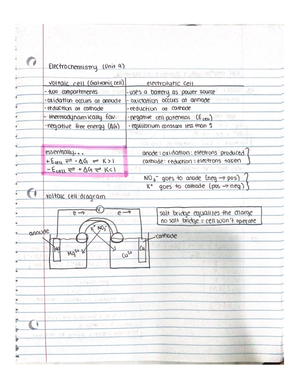 Electrochemistry (Unit 9)
voltaic cell (Galvanic cell)
electrolytic cell
- two compartments
- uses a battery as power source
- oxidation occurs at anode
- oxidation occurs at anode
- reduction at cathode
- reduction at cathode
- thermodynamically fav.
- negative cell potential (E cell)
- negative free energy (ΔG)
- equilibrium constant less than 1
essentially...
+Ecell ⇌ -ΔG ⇌ K>1
-Ecell ⇌ +ΔG ⇌ K<1
anode: oxidation: electrons produced
cathode: reduction: electrons taken
NO3⁻ goes to anode (neg → pos)
K⁺ goes to cathode (pos → neg)
voltaic cell diagram
salt bridge equalizes the charge
no salt bridge = cell won't operate
e⁻→
e⁻→
K⁺ NO3⁻
anode
cathode
Mg²⁺
Cu²⁺